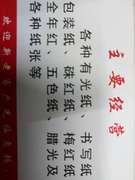 主要经营
各种有光纸、书写纸
包装纸、硃红纸、梅红纸
全年红、五色纸、腊光及
各种纸张等
欢迎新老